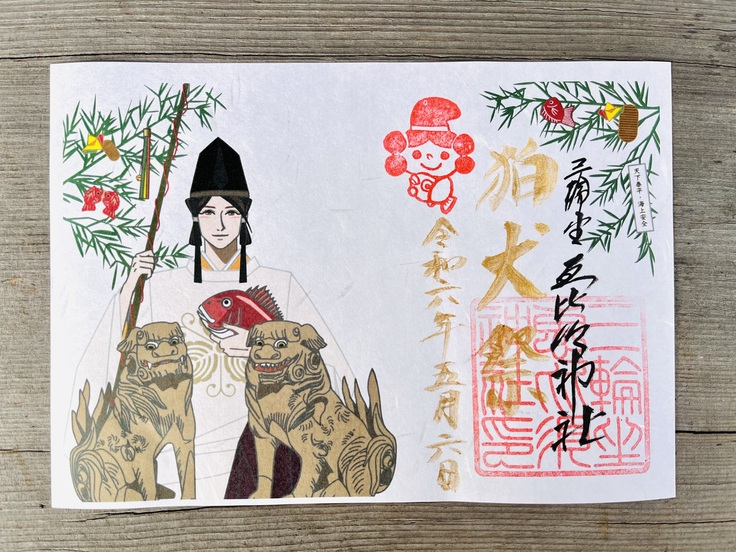 天下泰平・海上安全
三輪坐 恵比須神社
狛犬祭
令和六年五月六日
三輪坐
恵比須
神社印